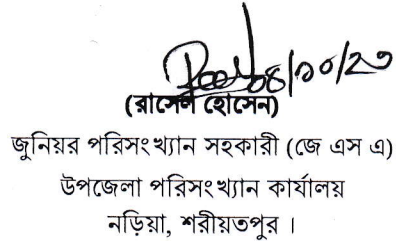 ০৪/১০/২৩
(রাসেল হোসেন)
জুনিয়র পরিসংখ্যান সহকারী (জে এস এ)
উপজেলা পরিসংখ্যান কার্যালয়
নড়িয়া, শরীয়তপুর ।